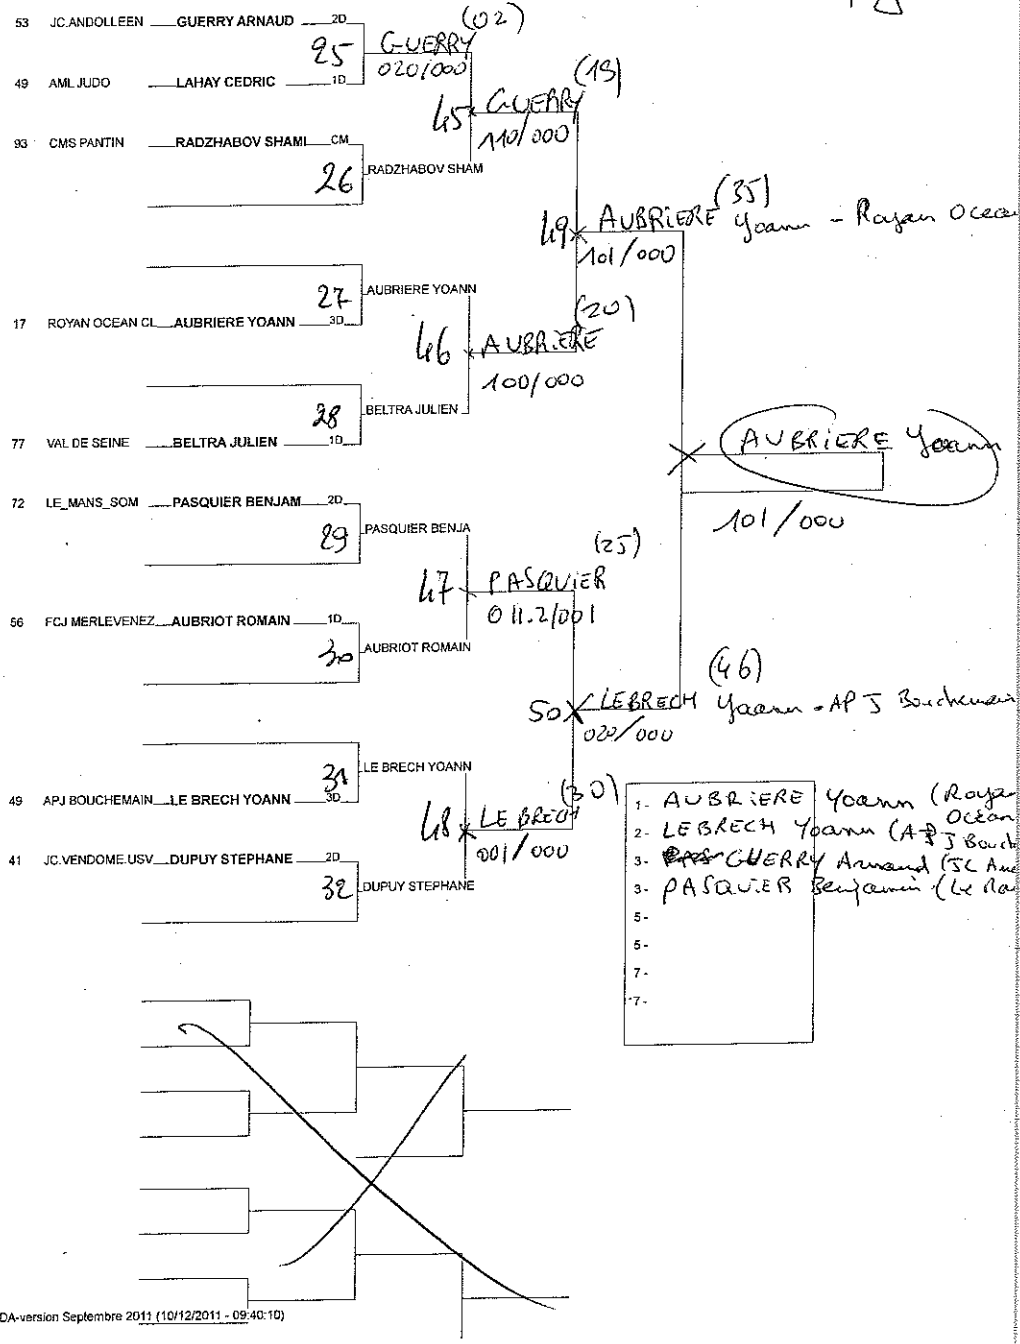 (02)
53 JC.ANDOLLEEN GUERRY ARNAUD 2D
25 GUERRY
020/000
(19)
49 AML JUDO LAHAY CEDRIC 1D
45 GUERRY
110/000
93 CMS PANTIN RADZHABOV SHAMI CM
26 RADZHABOV SHAM
(35)
49 AUBRIERE Yoann - Royan Ocean
101/000
27 AUBRIERE YOANN
17 ROYAN OCEAN CL AUBRIERE YOANN 3D
(20)
46 AUBRIERE
100/000
28 BELTRA JULIEN
77 VAL DE SEINE BELTRA JULIEN 1D
AUBRIERE Yoann
101/000
72 LE_MANS_SOM PASQUIER BENJAM 2D
29 PASQUIER BENJA
(25)
47 PASQUIER
011.2/001
56 FCJ MERLEVENEZ AUBRIOT ROMAIN 1D
30 AUBRIOT ROMAIN
(46)
50 LEBRECH Yoann - APJ Bouchemain
020/000
31 LE BRECH YOANN
49 APJ BOUCHEMAIN LE BRECH YOANN 3D
(30)
48 LE BRECH
001/000
41 JC.VENDOME.USV DUPUY STEPHANE 2D
32 DUPUY STEPHANE
1- AUBRIERE Yoann (Royan Océan
2- LEBRECH Yoann (APJ Bouch
3- GUERRY Arnaud (JC An
3- PASQUIER Benjamin (Le
5-
5-
7-
7-
DA-version Septembre 2011 (10/12/2011 - 09:40:10)